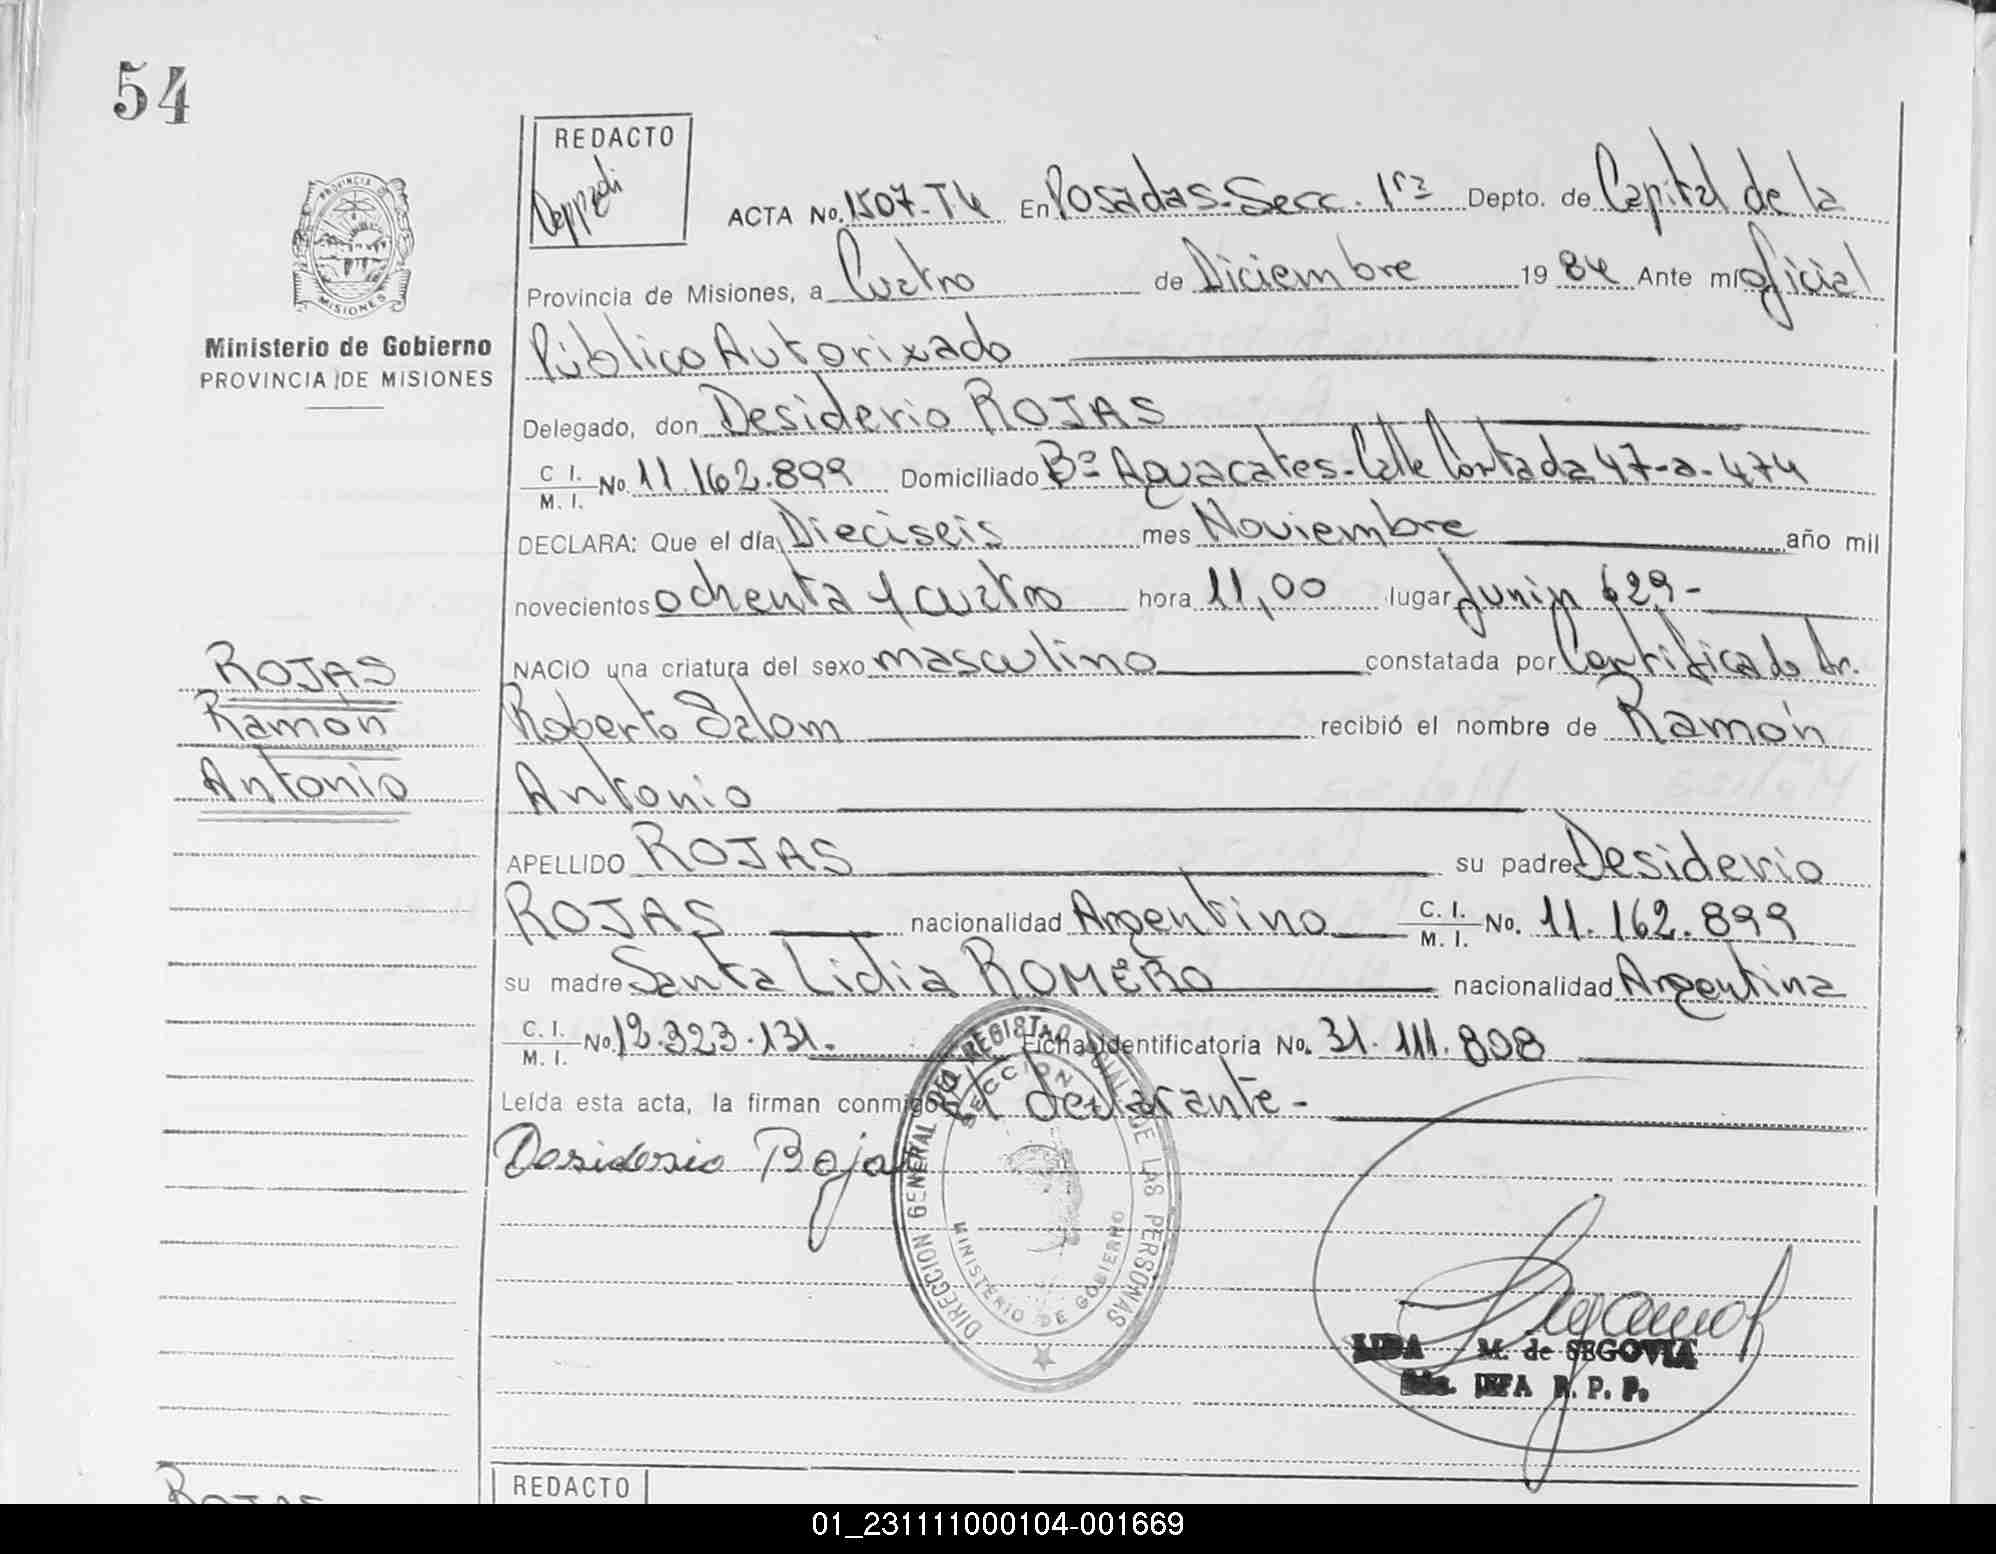 54
REDACTO
ACTA No. 1507-T4 En Posadas-Secc. 1ra Depto. de Capital de la
Provincia de Misiones, a Cuatro de Diciembre 1984 Ante mi Oficial
Ministerio de Gobierno
PROVINCIA DE MISIONES
PROVINCIA DE MISIONES
Público Autorizado
Delegado, don Desiderio ROJAS
C. I. M. I. No. 11.162.899 Domiciliado Bº Aguacates-Calle Cortada 47-a-474
DECLARA: Que el día Dieciseis mes Noviembre año mil
novecientos ochenta y cuatro hora 11,00 lugar Junin 629-
ROJAS
Ramón
Antonio
NACIO una criatura del sexo masculino constatada por Certificado Dr.
Roberto Salom recibió el nombre de Ramón
Antonio
APELLIDO ROJAS su padre Desiderio
ROJAS nacionalidad Argentino C. I. M. I. No. 11.162.899
su madre Santa Lidia ROMERO nacionalidad Argentina
C. I. M. I. No. 12.323.131. Ficha identificatoria No. 31.111.808
Leída esta acta, la firman conmigo el declarante-
Desiderio Roja
DIRECCION GENERAL DEL REGISTRO DE LAS PERSONAS
SECCION
MINISTERIO DE GOBIERNO
LIDA M. de SEGOVIA
JEFA R. P. P.
REDACTO
ROJAS
01_231111000104-001669